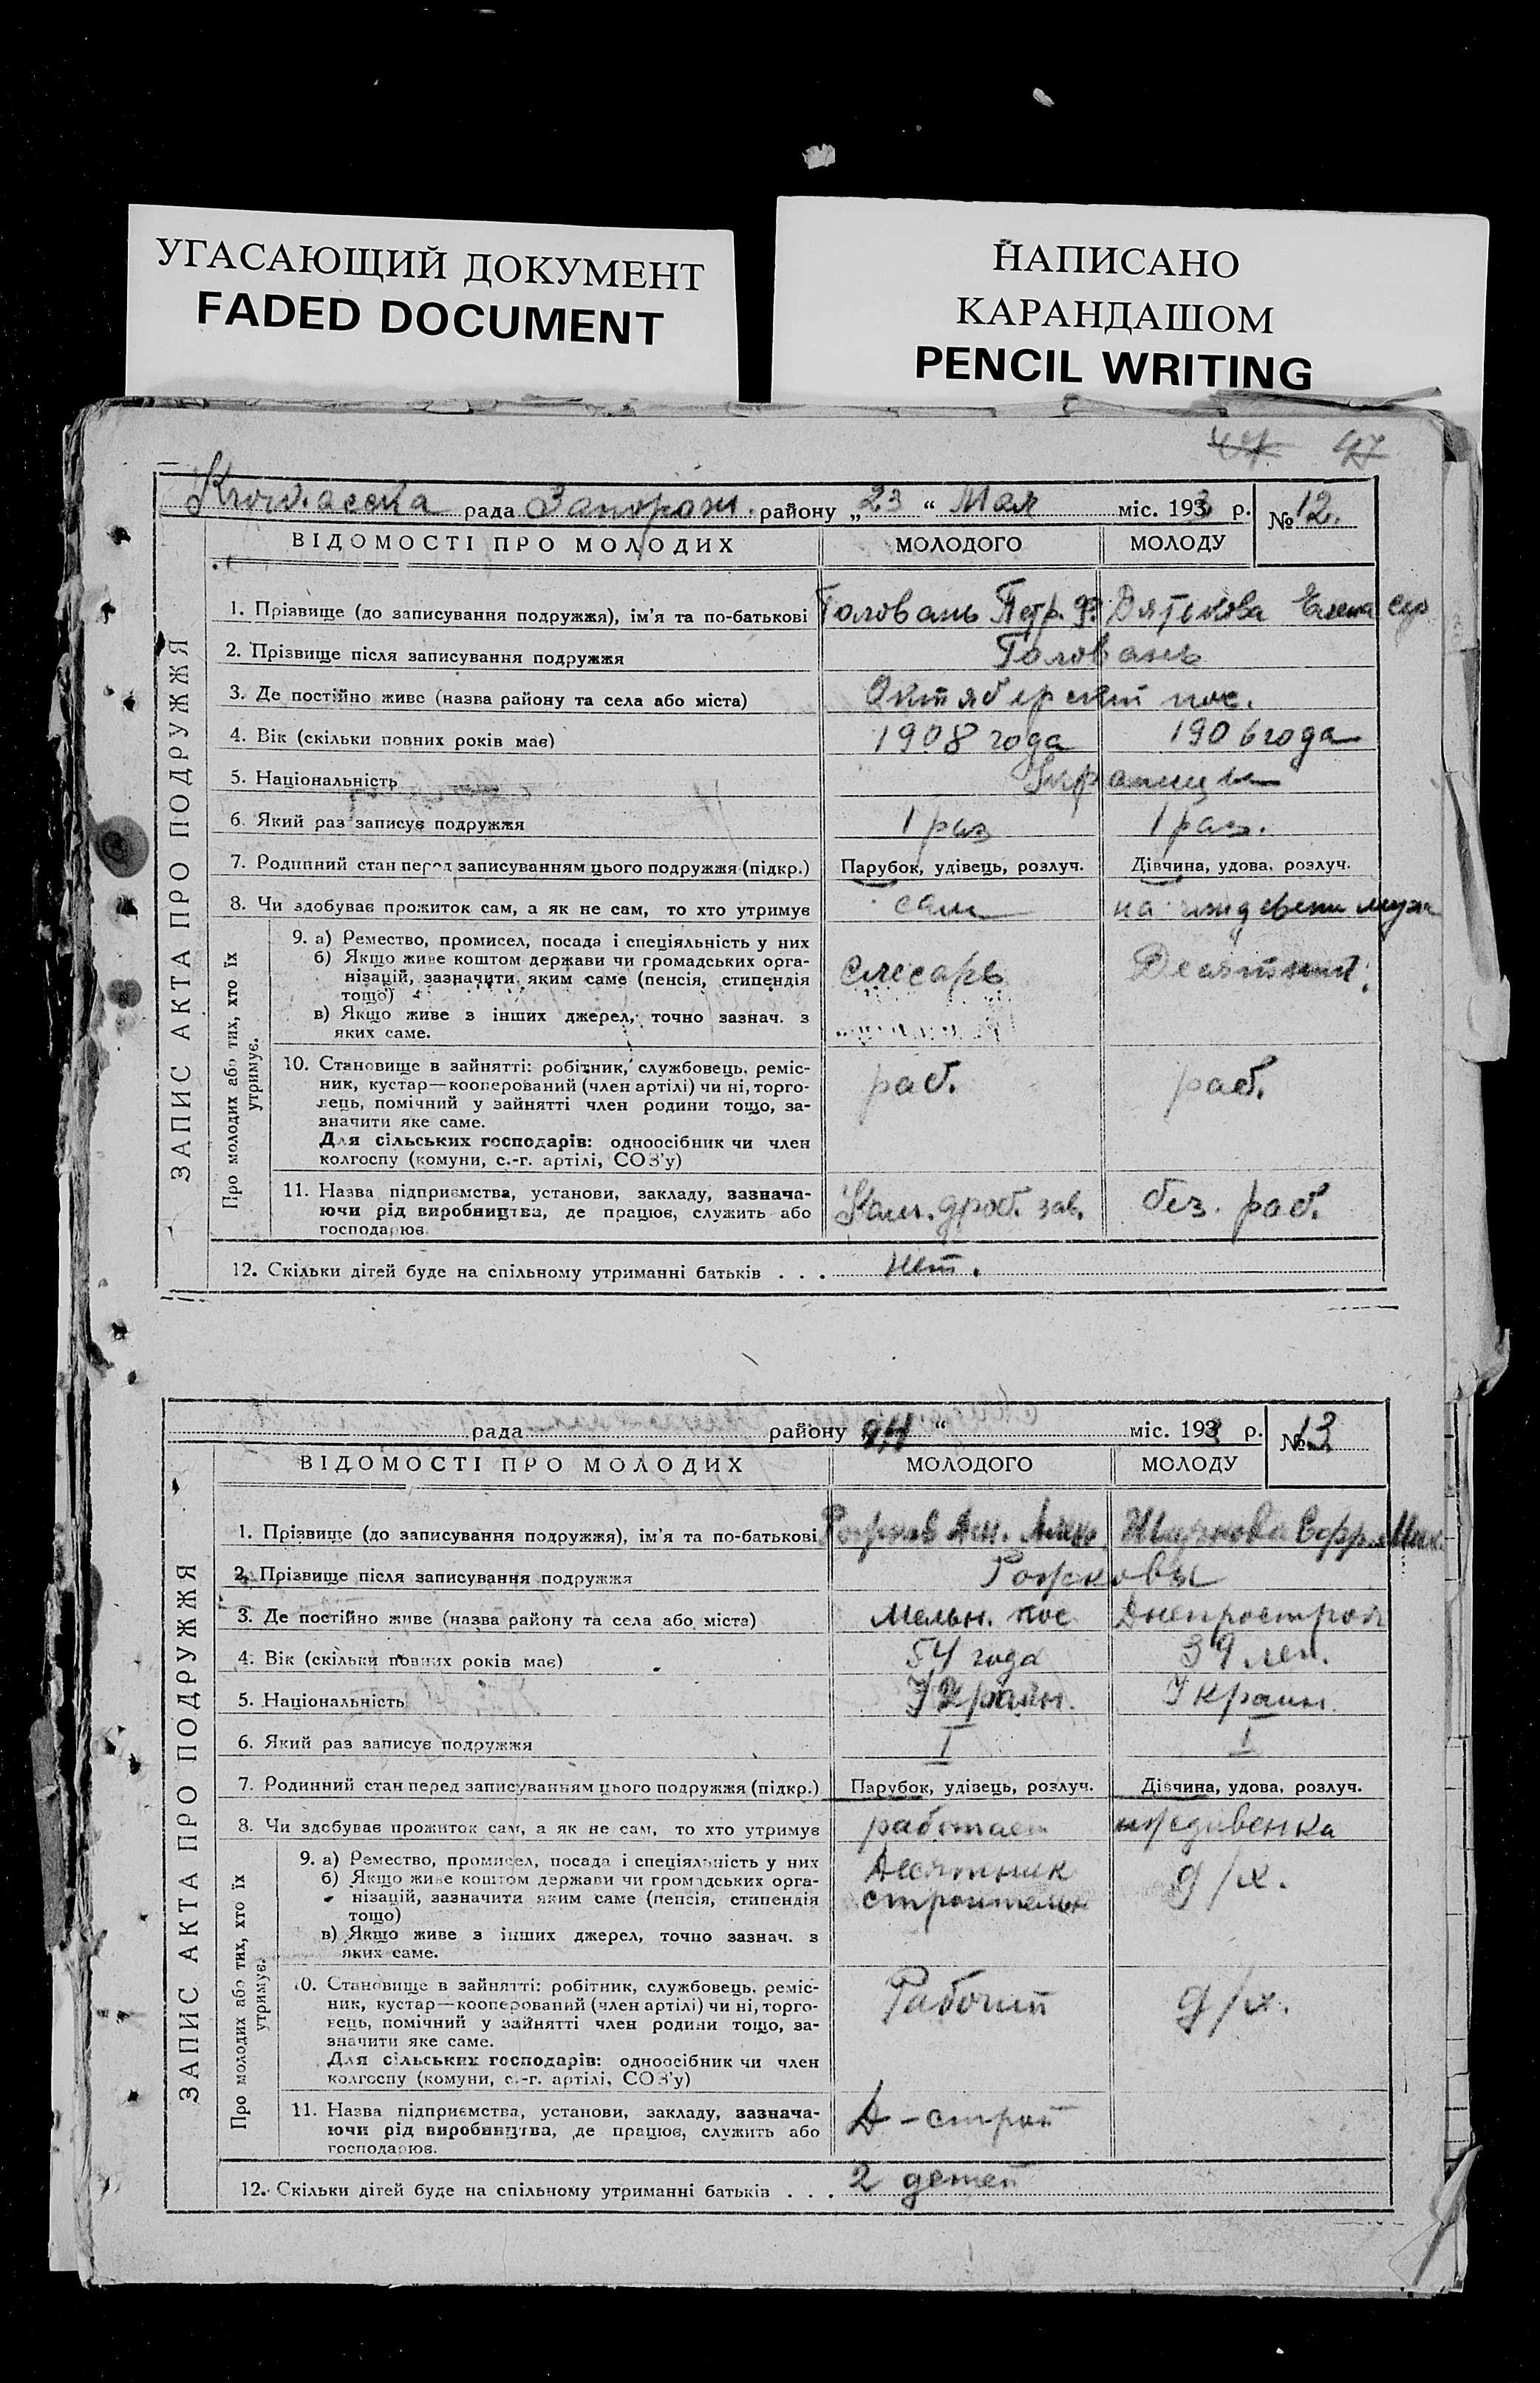 УГАСАЮЩИЙ ДОКУМЕНТ
FADED DOCUMENT
НАПИСАНО
КАРАНДАШОМ
PENCIL WRITING
47 47
рада Запорож. району „23“ Мая міс. 1933 р. № 12.
ВІДОМОСТІ ПРО МОЛОДИХ МОЛОДОГО МОЛОДУ
ЗАПИС АКТА ПРО ПОДРУЖЖЯ
1. Прізвище (до записування подружжя), ім'я та по-батькові Головань Петр. Ф. Дятькова Елена
2. Прізвище після записування подружжя Головань
3. Де постійно живе (назва району та села або міста) Октяберский пос.
4. Вік (скільки повних років має) 1908 года 1906 года
5. Національність Украинцы
6. Який раз записує подружжя 1 раз 1 раз.
7. Родинний стан перед записуванням цього подружжя (підкр.) Парубок, удівець, розлуч. Дівчина, удова, розлуч.
8. Чи здобуває прожиток сам, а як не сам, то хто утримує сам на иждевени мужа
Про молодих або тих, хто їх утримує.
9. а) Ремество, промисел, посада і спеціяльність у них
б) Якщо живе коштом держави чи громадських орга-
нізацій, зазначити яким саме (пенсія, стипендія слесарь Десятник
тощо)
в) Якщо живе з інших джерел, точно зазнач. з
яких саме.
10. Становище в зайнятті: робітник, службовець, реміс-
ник, кустар—кооперований (член артілі) чи ні, торго- раб. раб.
вець, помічний у зайнятті член родини тощо, за-
значити яке саме.
Для сільських господарів: одноосібник чи член
колгоспу (комуни, с.-г. артілі, СОЗ'у)
11. Назва підприємства, установи, закладу, зазнача-
ючи рід виробництва, де працює, служить або Кам. дроб. зав. без. раб.
господарює.
12. Скільки дітей буде на спільному утриманні батьків . . . нет.
рада району „ “ міс. 193 р. № 13
ВІДОМОСТІ ПРО МОЛОДИХ МОЛОДОГО МОЛОДУ
ЗАПИС АКТА ПРО ПОДРУЖЖЯ
1. Прізвище (до записування подружжя), ім'я та по-батькові Рожков Ефр. Мих.
2. Прізвище після записування подружжя Рожковы
3. Де постійно живе (назва району та села або міста) Мельн. пос Днепрострой
4. Вік (скільки повних років має) 54 года 39 лет.
5. Національність Украин. Украин.
6. Який раз записує подружжя I I
7. Родинний стан перед записуванням цього подружжя (підкр.) Парубок, удівець, розлуч. Дівчина, удова, розлуч.
8. Чи здобуває прожиток сам, а як не сам, то хто утримує работает иждивенка
Про молодих або тих, хто їх утримує.
9. а) Ремество, промисел, посада і спеціяльність у них Десятник
б) Якщо живе коштом держави чи громадських орга- д/х.
нізацій, зазначити яким саме (пенсія, стипендія строитель
тощо)
в) Якщо живе з інших джерел, точно зазнач. з
яких саме.
10. Становище в зайнятті: робітник, службовець, реміс-
ник, кустар—кооперований (член артілі) чи ні, торго- Рабочий д/х.
вець, помічний у зайнятті член родини тощо, за-
значити яке саме.
Для сільських господарів: одноосібник чи член
колгоспу (комуни, с.-г. артілі, СОЗ'у)
11. Назва підприємства, установи, закладу, зазнача- Д-строй
ючи рід виробництва, де працює, служить або
господарює.
12. Скільки дітей буде на спільному утриманні батьків . . . 2 детей